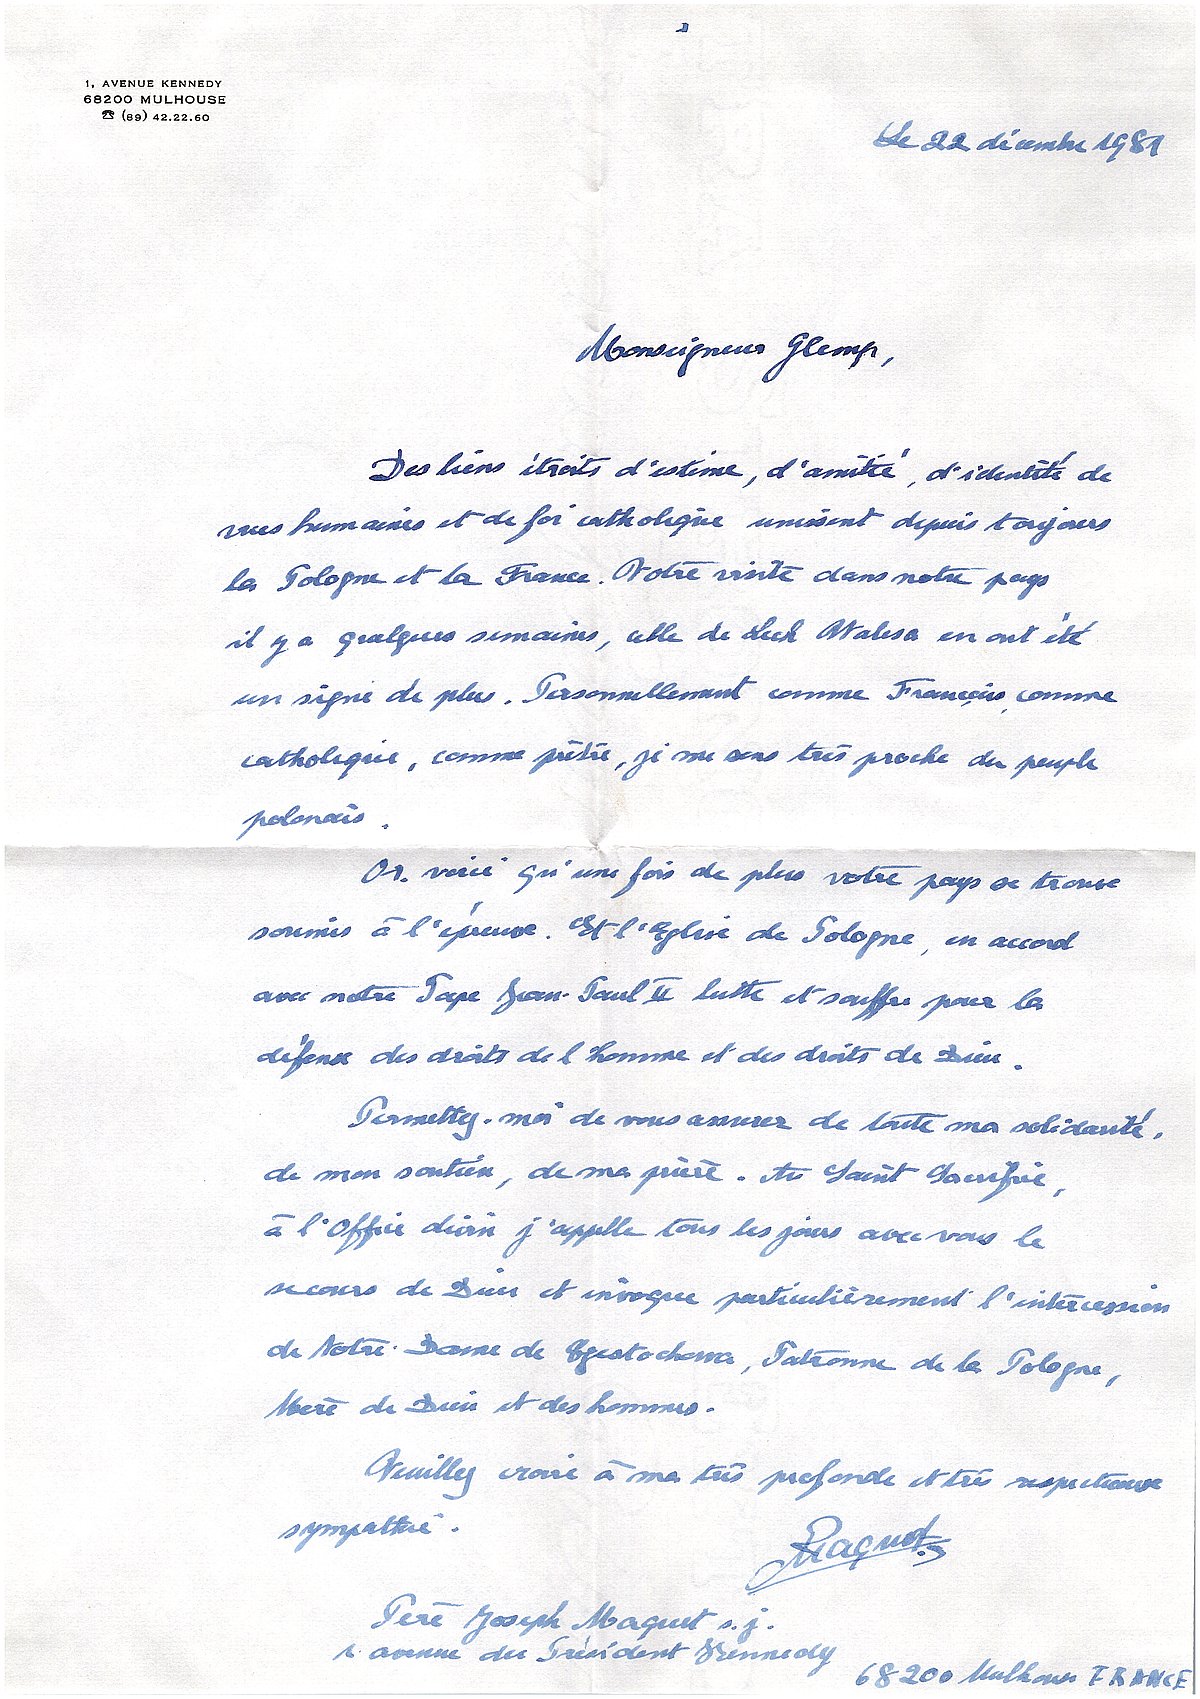 1, AVENUE KENNEDY
68200 MULHOUSE
☎ (89) 42.22.60
Le 22 décembre 1981
Monseigneur Glemp,
Des liens étroits d'estime, d'amitié, d'identité de
vues humaines et de foi catholique unissent depuis toujours
la Pologne et la France. Votre visite dans notre pays
il y a quelques semaines, celle de Lech Walesa en ont été
un signe de plus. Personnellement comme Français, comme
catholique, comme prêtre, je me sens très proche du peuple
polonais.
Or, voici qu'une fois de plus votre pays se trouve
soumis à l'épreuve. Et l'Eglise de Pologne, en accord
avec notre Pape Jean-Paul II lutte et souffre pour la
défense des droits de l'homme et des droits de Dieu.
Permettez-moi de vous assurer de toute ma solidarité,
de mon soutien, de ma prière. Au Saint Sacrifice,
à l'Office divin j'appelle tous les jours avec vous le
secours de Dieu et invoque particulièrement l'intercession
de Notre-Dame de Czestochowa, Patronne de la Pologne,
Mère de Dieu et des hommes.
Veuillez croire à ma très profonde et très respectueuse
sympathie.
JMaquet s.j.
Père Joseph Maquet s.j.
1. avenue du Président Kennedy
68200 Mulhouse FRANCE